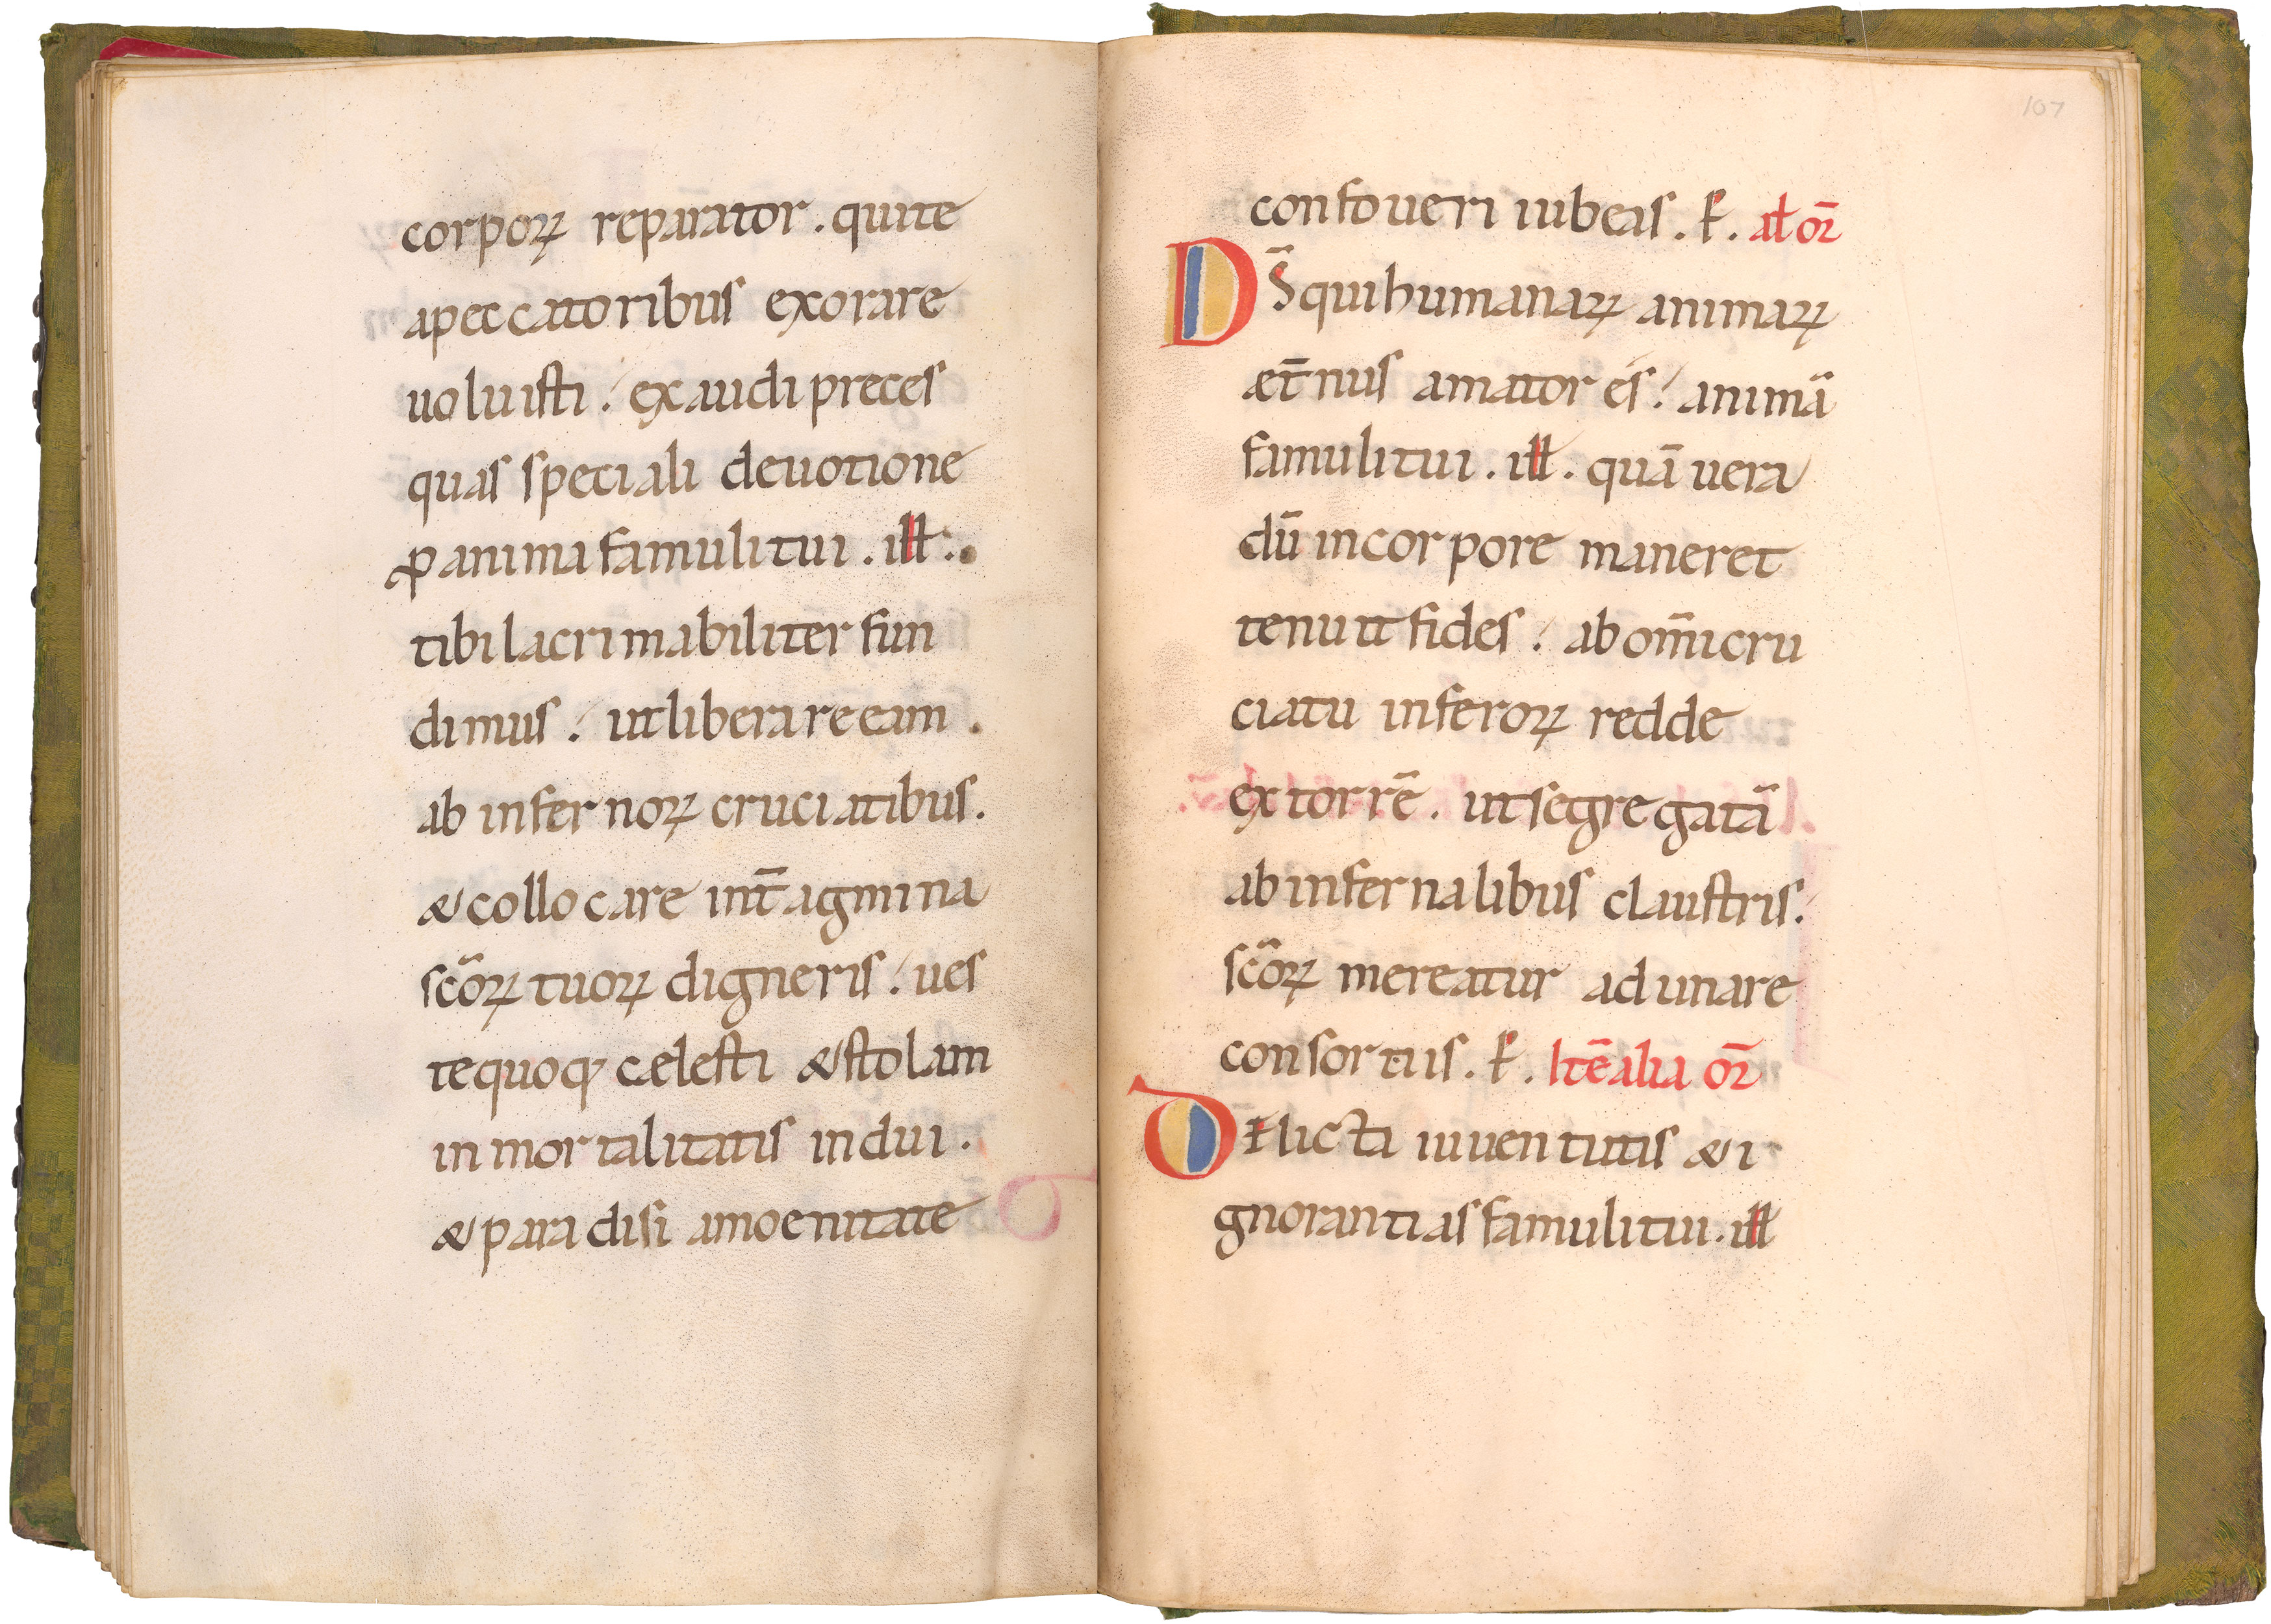 corporꝝ reparator. qui te
a peccatoribus exorare
uoluisti. exaudi preces
quas speciali deuotione
ꝓ anima famuli tui. ill.
tibi lacrimabiliter fun
dimus. ut liberare eam.
ab infernoꝝ cruciatibus.
& collocare int̄ agmina
sc̄oꝝ tuoꝝ digneris. ues
te quoq; cælesti & stolam
inmortalitatis indui.
& paradisi amoenitate
107
confoueri iubeas. P. al or̄
DS̄ qui humanaꝝ animaꝝ
æt̄nus amator es. animā
famuli tui. ill. quā uera
dū in corpore maneret
tenuit fides. ab om̄i cru
ciatu inferoꝝ redde
extorrē. ut segregatā
ab infernalibus claustris.
sc̄oꝝ mereatur adunare
consortiis. P. Itē alia or̄
DElicta iuuentutis & i
gnorantias famuli tui. ill